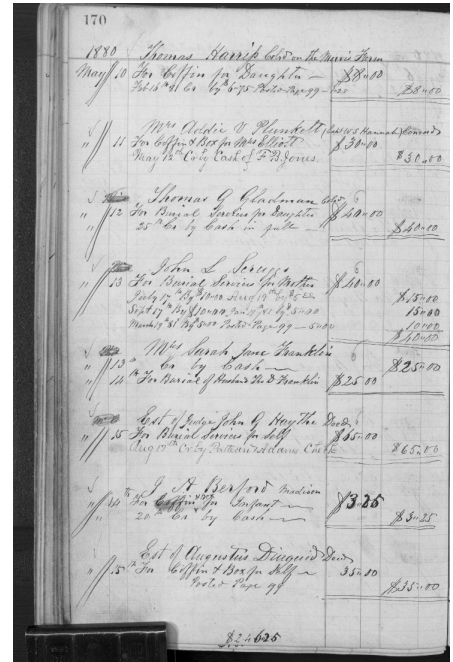 170
1880 Thomas Harris Cold on the Morris Farm
May 10 For Coffin for Daughter $8.00
Feb 16th 81 Cr by 6.75 Posted Page 99 $8.00
Mrs Addie V Plunkett Concord
" 11 For Coffin & Box for Mrs Elliott $30.00
May 12th Cr by Cash of F B Jones $30.00
Thomas G Gladman
" 12 For Burial Services for Daughter $40.00
25th Cr by Cash in full $40.00
John L Scruggs
" 13 For Burial Services for Mother $40.00
July 17th By $10.00 Aug 19th by $5.00 $15.00
Sept 17th By $10.00 Jan 19 81 by 5.00 15.00
March 19th 81 By 5.00 Posted Page 99 5.00 10.00
$40.00
Mrs Sarah Jane Franklin
" 13th Cr by Cash $25.00
" 14th For Burial of Husband Tho D Franklin $25.00
Est of Judge John G Haythe Decd
" 15 For Burial Services for Self $65.00
Aug 17th Cr by Nathan Adams $65.00
J A Berford Madison
" For Coffin & Box for Infant $3.25
" 20th Cr by Cash $3.25
Est of Augustus Diuguid Decd
" 15th For Coffin & Box for Self 35.00
Posted Page 99 $35.00
$246.25